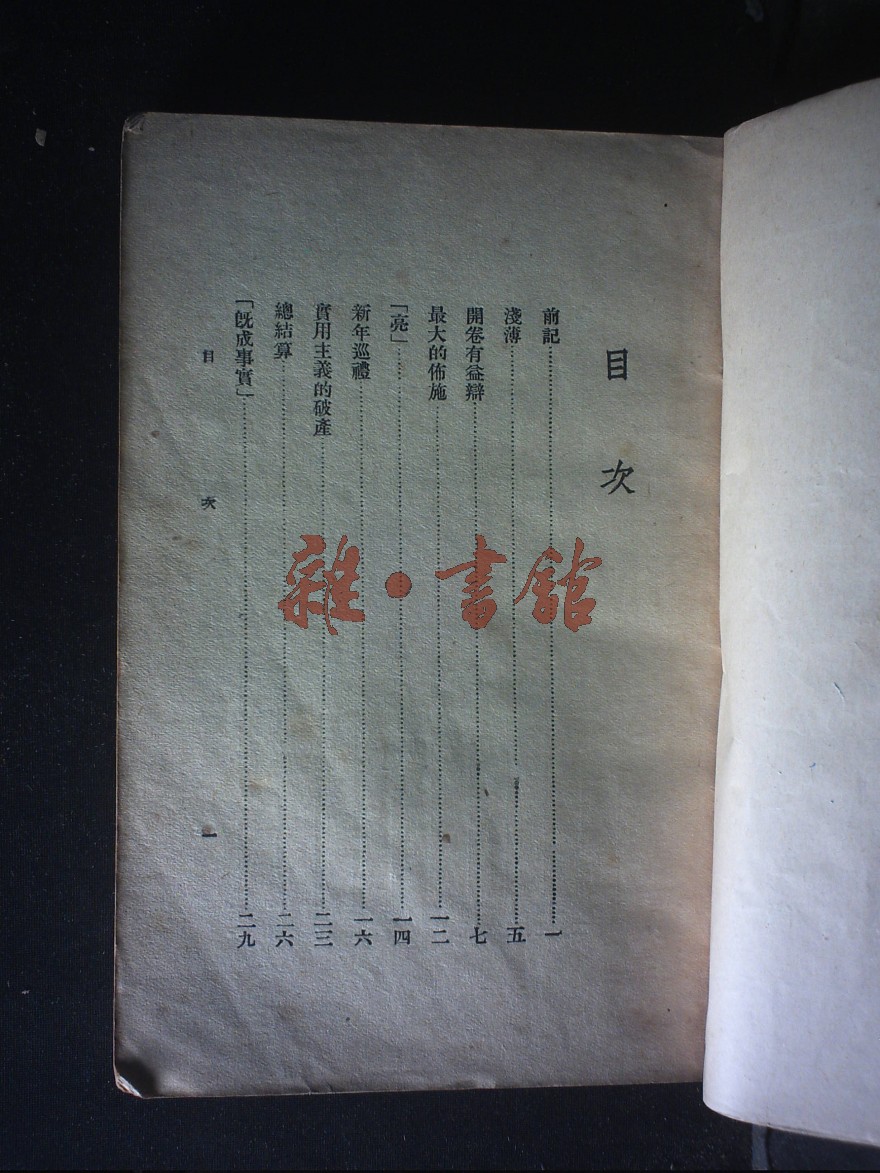 目次
前記……一
淺薄……五
開卷有益辯……七
最大的佈施……一二
「亮」……一四
新年巡禮……一六
實用主義的破產……二三
總結算……二六
「既成事實」……二九
目次 一
雜·書館